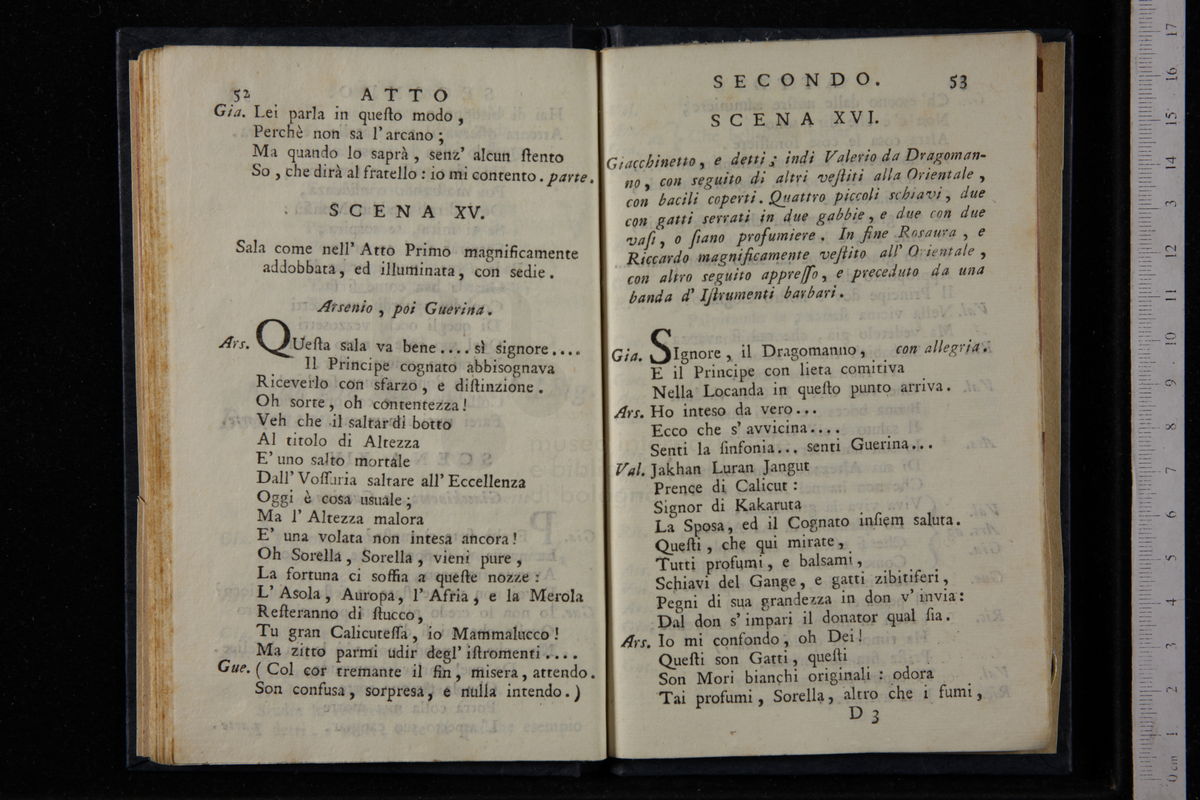 52 ATTO
Gia. Lei parla in questo modo,
Perchè non sa l'arcano;
Ma quando lo saprà, senz' alcun stento
So, che dirà al fratello: io mi contento. parte.
SCENA XV.
Sala come nell' Atto Primo magnificamente
addobbata, ed illuminata, con sedie.
Arsenio, poi Guerina.
Ars. QUesta sala va bene.... sì signore....
Il Principe cognato abbisognava
Riceverlo con sfarzo, e distinzione.
Oh sorte, oh contentezza!
Veh che il saltar di botto
Al titolo di Altezza
E' uno salto mortale
Dall' Vossuria saltare all' Eccellenza
Oggi è cosa usuale;
Ma l' Altezza malora
E' una volata non intesa ancora!
Oh Sorella, Sorella, vieni pure,
La fortuna ci soffia a queste nozze:
L' Asola, Auropa, l' Afria, e la Merola
Resteranno di stucco,
Tu gran Calicutessa, io Mammalucco!
Ma zitto parmi udir degl' istromenti....
Gue. (Col cor tremante il fin, misera, attendo.
Son confusa, sorpresa, e nulla intendo.)
SECONDO. 53
SCENA XVI.
Giacchinetto, e detti; indi Valerio da Dragoman-
no, con seguito di altri vestiti alla Orientale,
con bacili coperti. Quattro piccoli schiavi, due
con gatti serrati in due gabbie, e due con due
vasi, o siano profumiere. In fine Rosaura, e
Riccardo magnificamente vestito all' Orientale,
con altro seguito appresso, e preceduto da una
banda d' Istrumenti barbari.
Gia. SIgnore, il Dragomanno, con allegria.
E il Principe con lieta comitiva
Nella Locanda in questo punto arriva.
Ars. Ho inteso da vero...
Ecco che s' avvicina....
Senti la sinfonia... senti Guerina...
Val. Jakhan Luran Jangut
Prence di Calicut:
Signor di Kakaruta
La Sposa, ed il Cognato insiem saluta.
Questi, che qui mirate,
Tutti profumi, e balsami,
Schiavi del Gange, e gatti zibitiferi,
Pegni di sua grandezza in don v' invia:
Dal don s' impari il donator qual sia.
Ars. Io mi confondo, oh Dei!
Questi son Gatti, questi
Son Mori bianchi originali: odora
Tai profumi, Sorella, altro che i fumi,
D 3